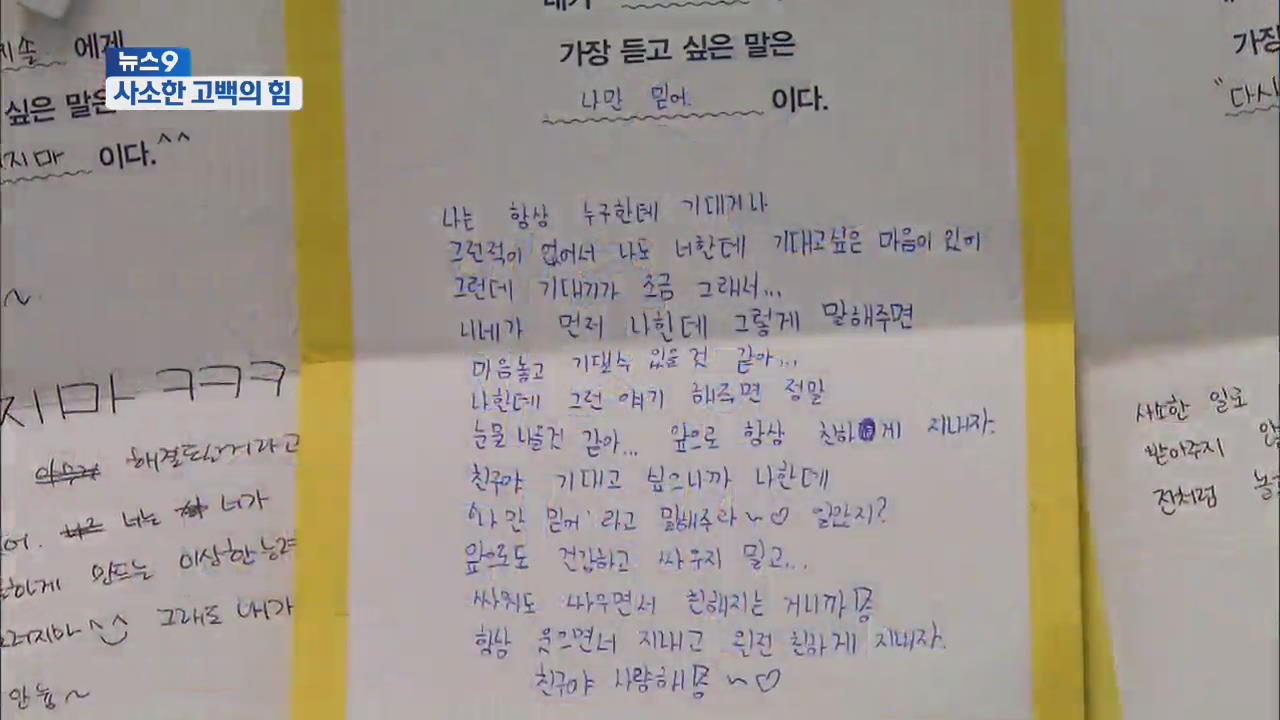 뉴스9
사소한 고백의 힘
에게
싶은 말은
지마 이다.^^
~
지마 ㅋㅋㅋ
해결되는거라고
너는 너가
하게 만드는 이상한능력
그래도 내가
안뇽~
내가
가장 듣고 싶은 말은
나만 믿어. 이다.
나는 항상 누구한테 기대거나
그런적이 없어서 나도 너한테 기대고싶은 마음이 있어
그런데 기대기가 조금 그래서...
니네가 먼저 나한테 그렇게 말해주면
마음놓고 기댈수 있을것 같아...
나한테 그런 얘기 해주면 정말
눈물 나올것 같아... 앞으로 항상 친하게 지내자.
친구야 기대고 싶으니까 나한테
'나만 믿어' 라고 말해주라~♡ 알았지?
앞으로도 건강하고 싸우지 말고...
싸워도 싸우면서 친해지는 거니까
항상 웃으면서 지내고 완전 친하게 지내자.
친구야 사랑해 ~♡
가장
"다시
사소한 일로
받아주지
전처럼